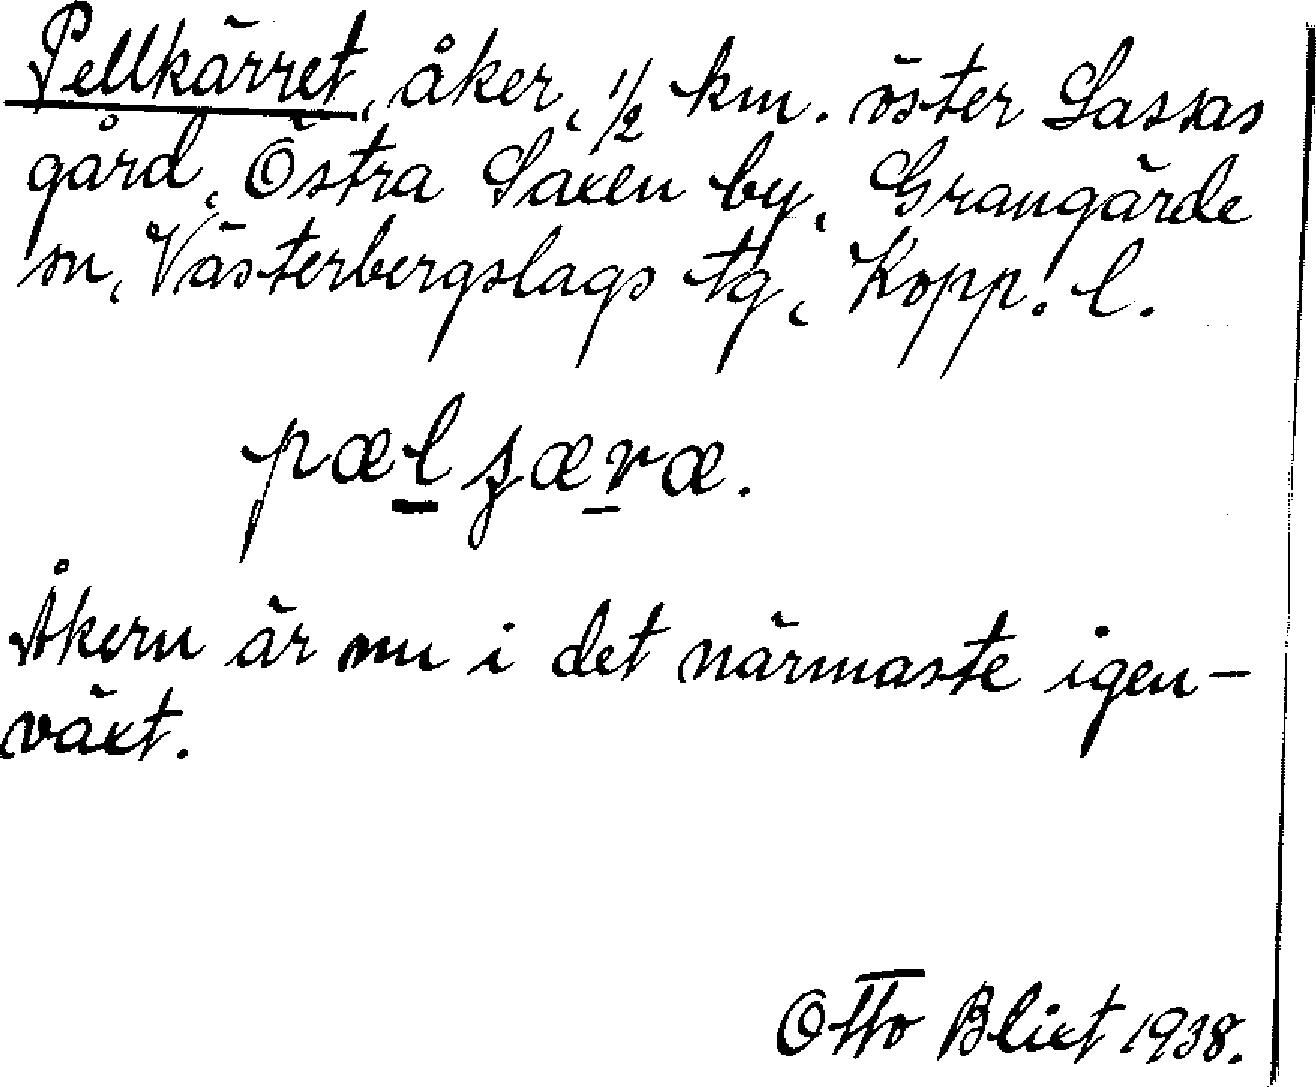 Pellkärret, åker, 1/2 km. öster Lassas
gård, Östra Saxen by, Grangärde
sn, Västerbergslags tg, Kopp. l.
pæl̲ʒær̲æ.
Åkern är nu i det närmaste igen-
växt.
Otto Blixt 1938.